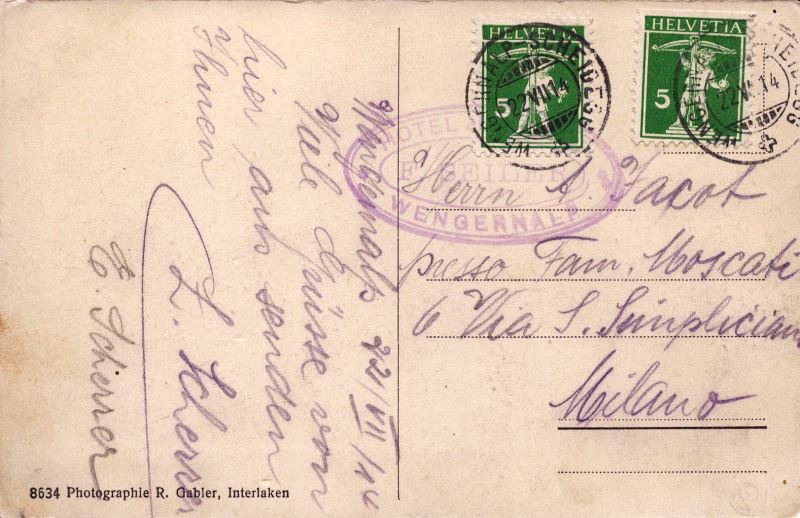 Wengernalp 22/VII/14
Viele Grüsse von
hier aus senden
Ihnen
L. Scherrer
E. Scherrer
8634 Photographie R. Gabler, Interlaken
HELVETIA
5
HELVETIA
5
WENGERNALP-SCHEIDEGG
22.VII.14
22.VII.14
HOTEL
F. SEILER
WENGERNALP
Herrn A. Jacot
presso Fam. Moscati
6 Via S. Simpliciano
Milano